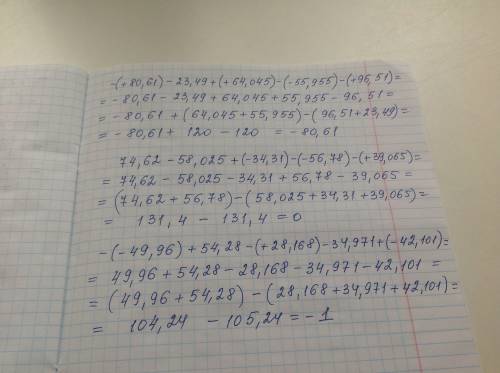 -(+80,61)-23,49+(+64,045)-(-55,955)-(+96,51)=
=-80,61-23,49+64,045+55,955-96,51=
=-80,61+(64,045+55,955)-(96,51+23,49)=
=-80,61+120-120=-80,61
74,62-58,025+(-34,31)-(-56,78)-(+39,065)=
=74,62-58,025-34,31+56,78-39,065=
=(74,62+56,78)-(58,025+34,31+39,065)=
=131,4-131,4=0
-(-49,96)+54,28-(+28,168)-34,971+(-42,101)=
=49,96+54,28-28,168-34,971-42,101=
=(49,96+54,28)-(28,168+34,971+42,101)=
=104,24-105,24=-1